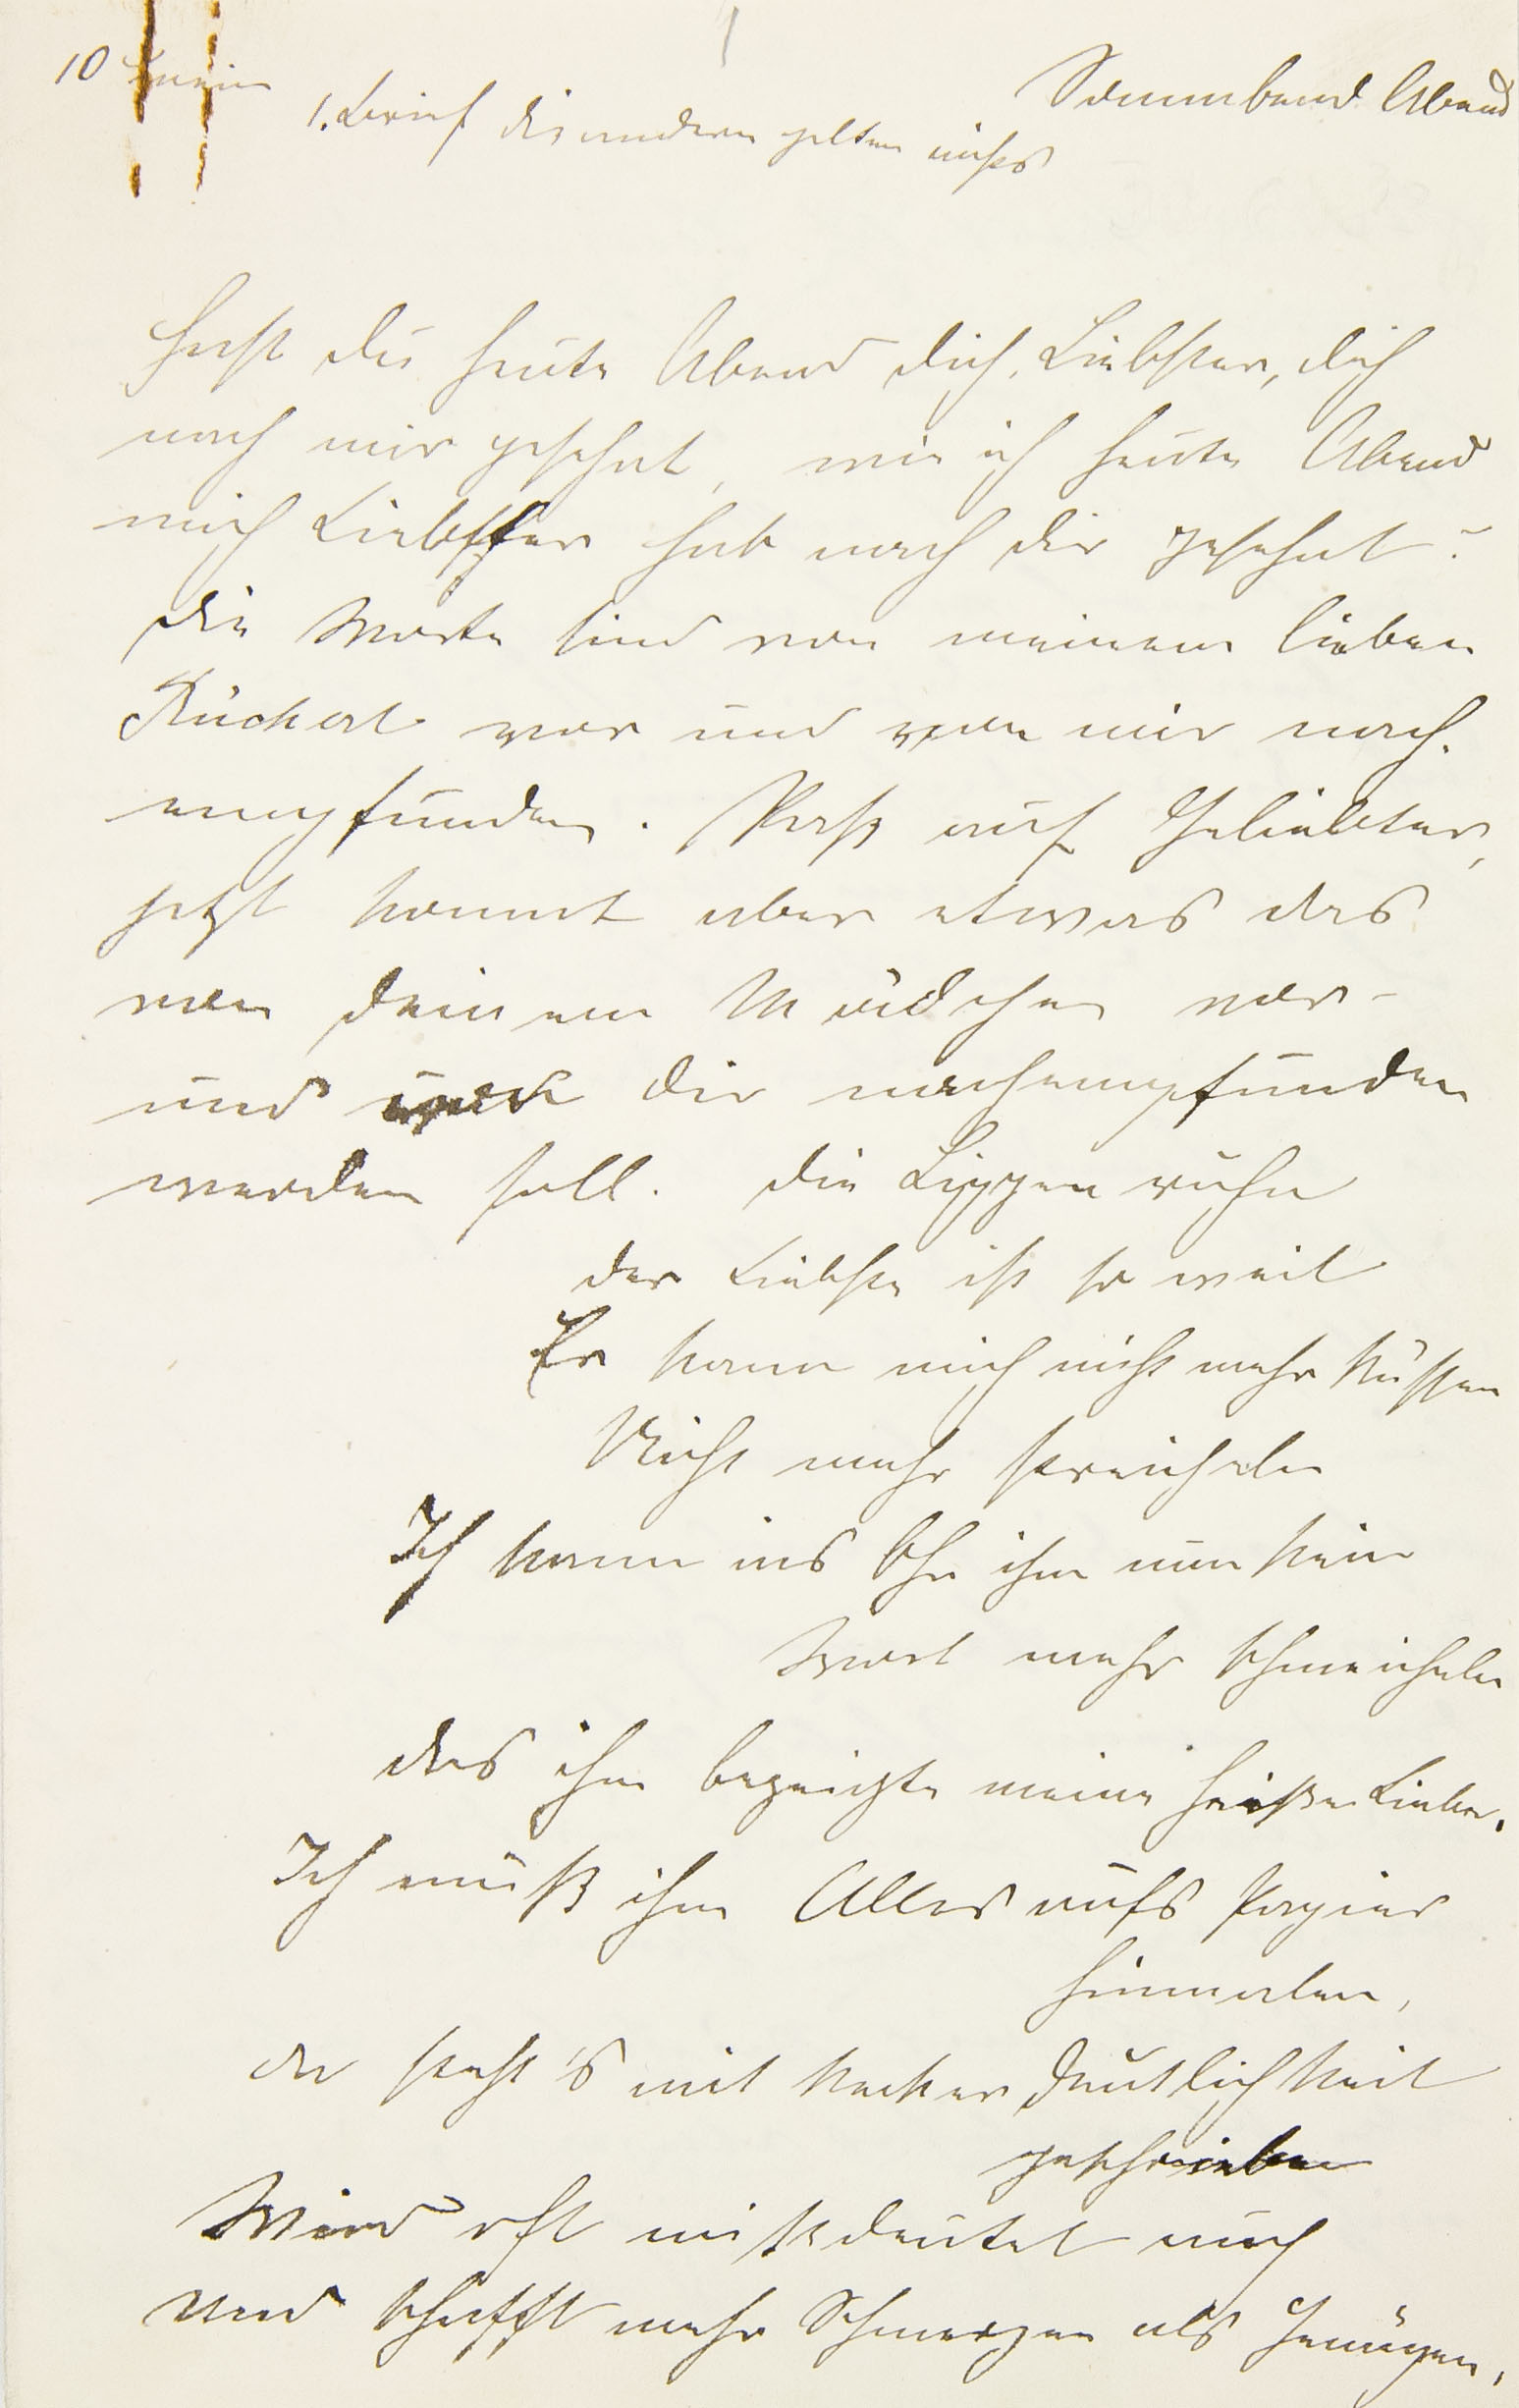 10
1. Brief die anderen gelten nichts
Sonnabend Abend
Hast du heute Abend dich, Liebster, dich
nach mir gesehnt, wie ich heute Abend
mich Liebster hab nach dir gesehnt?
Die Worte sind von meinem lieben
Rückert vor und von mir nach.
empfunden. Paß auf Geliebter,
jetzt kommt aber etwas das
von deinem Mädchen vor-
und von dir nachempfunden
werden soll. Die Lippen ruhn
der Liebste ist so weit
Er kann mich nicht mehr küssen
Nicht mehr streicheln
Ich kann ins Ohr ihm nun kein
Wort mehr schmeicheln
das ihm bezeigte meine heiße Liebe.
Ich muß ihm Alles aufs Papier
hinmalen,
da steht's mit kecker Deutlichkeit
geschrieben
Wird oft mißdeutet auch
Und schafft mehr Schmerzen als Genügen,